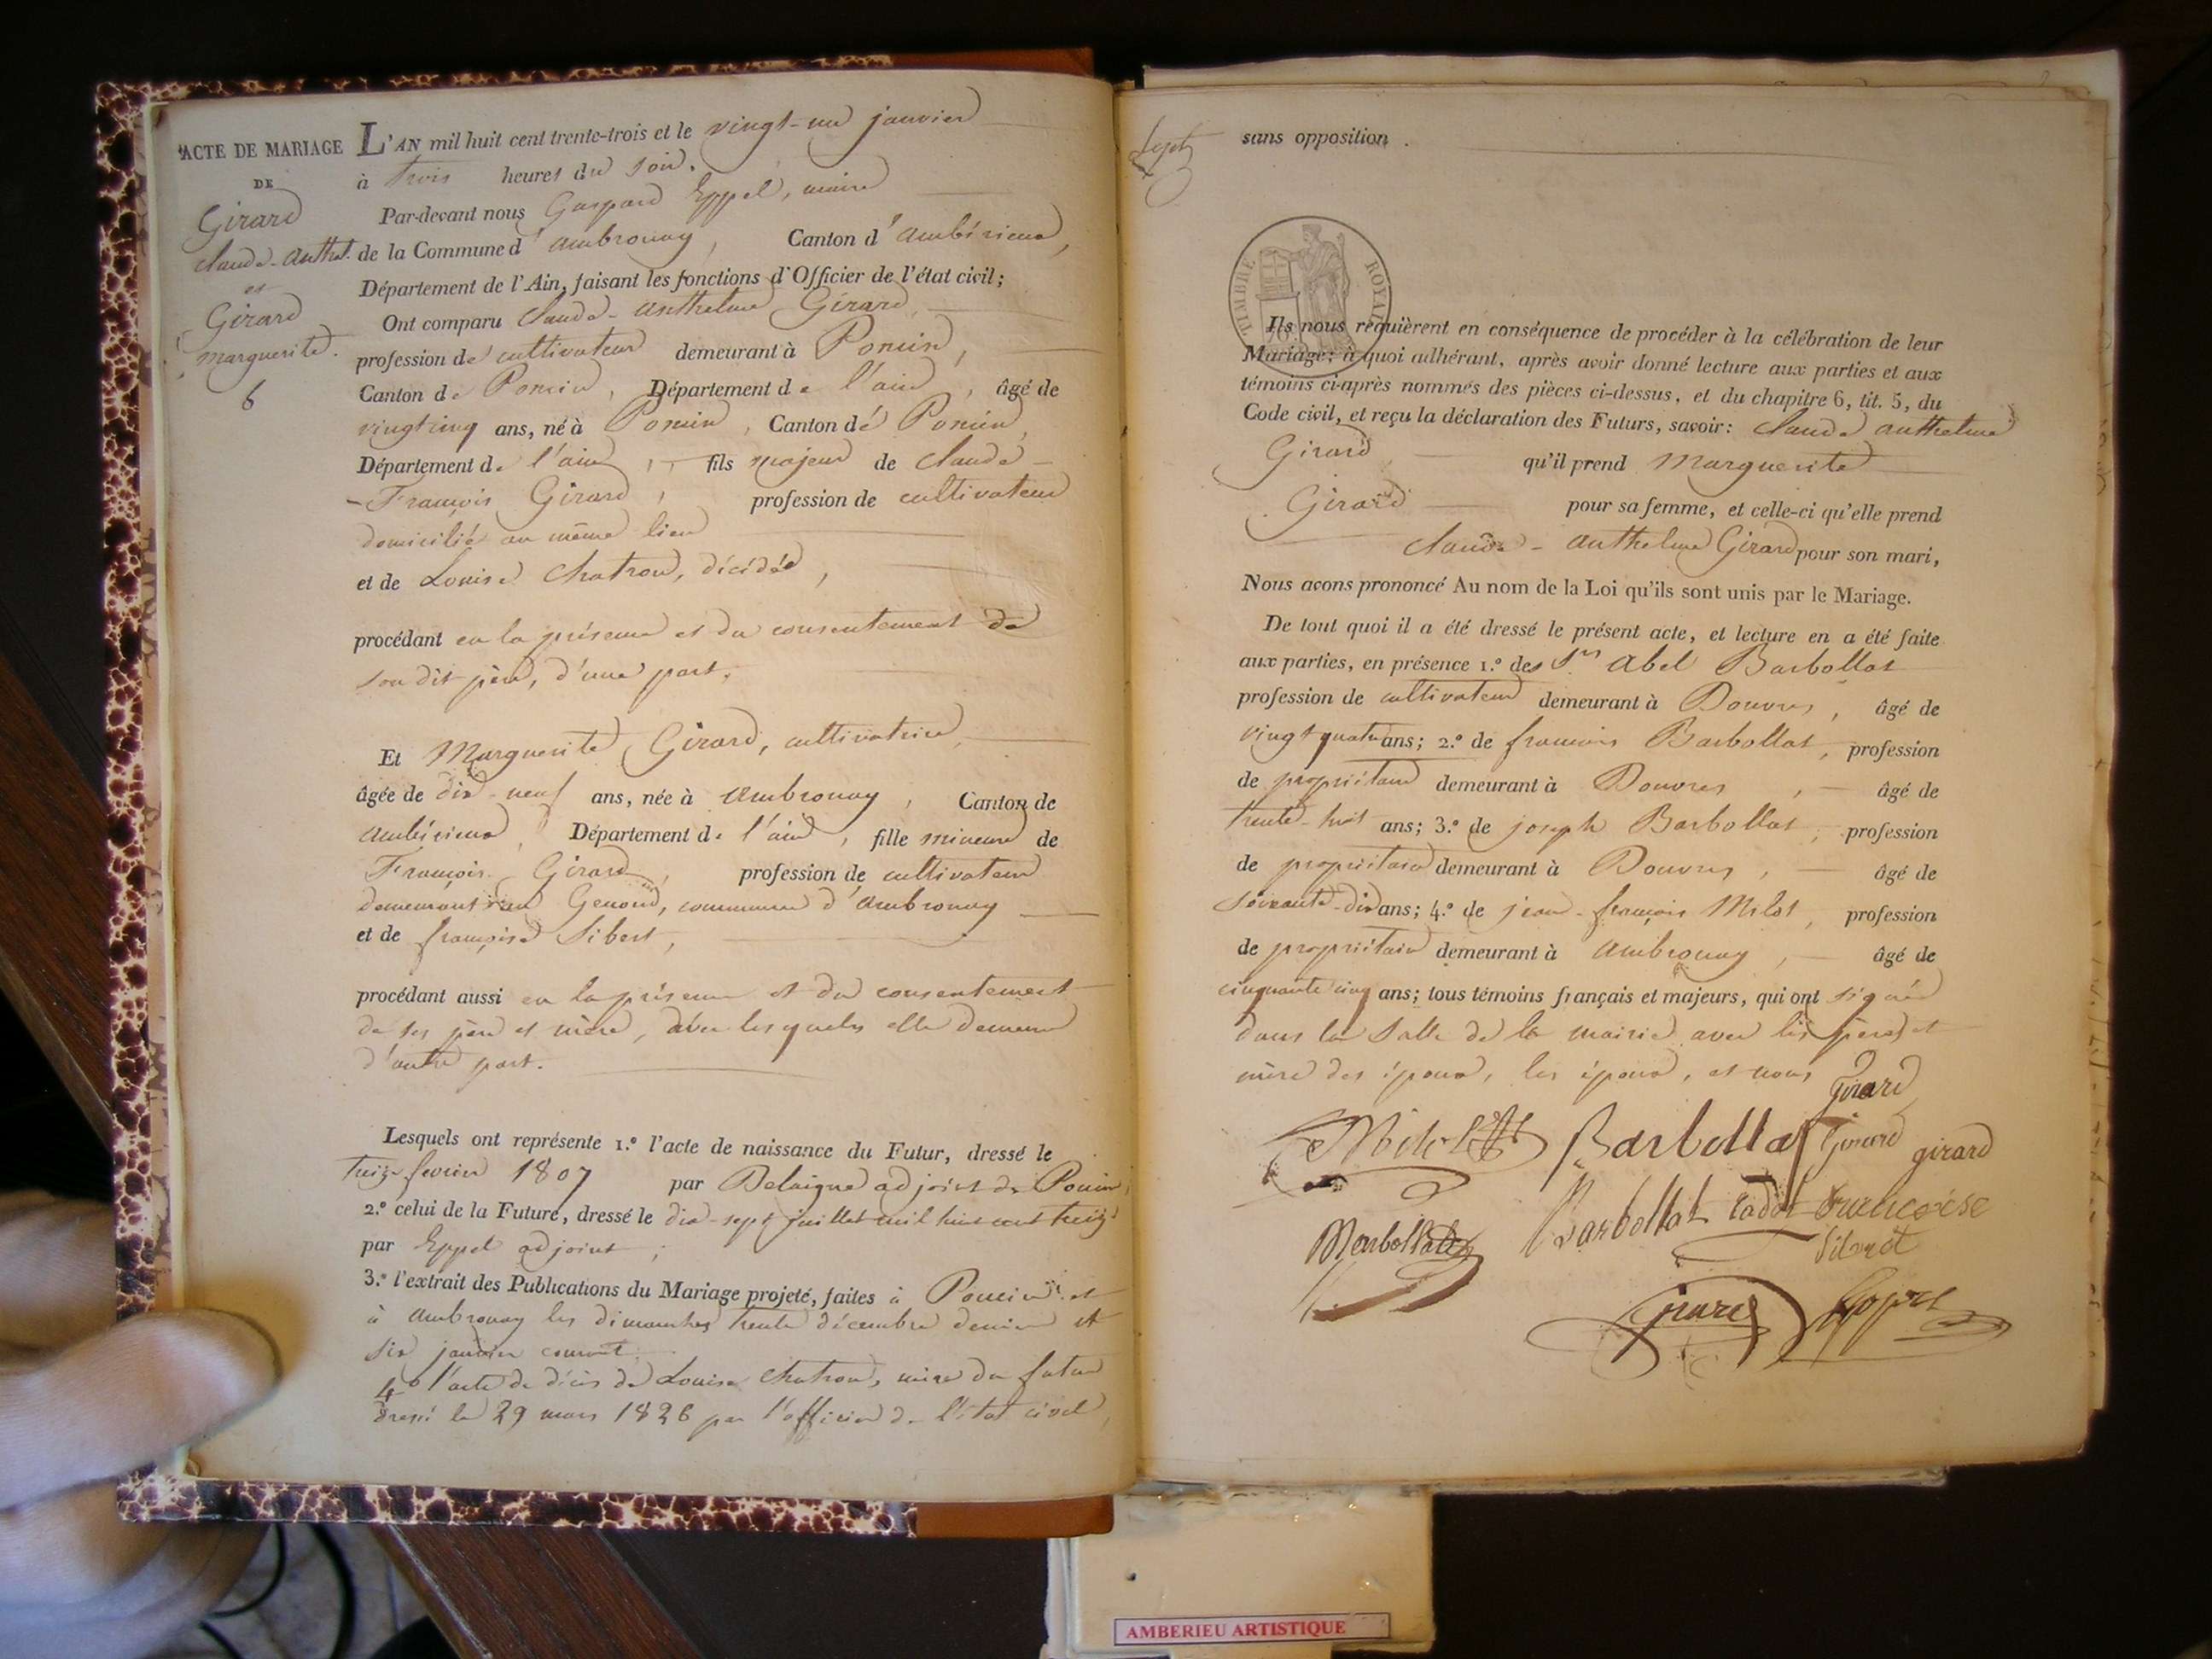 ACTE DE MARIAGE
DE
Girard
Claude-Anthel.
et
Girard
marguerite.
6
L'AN mil huit cent trente-trois et le vingt-un janvier
à trois heures du soir.
Par-devant nous Gaspard Eppel, maire
de la Commune d'ambronay, Canton d'ambérieux,
Département de l'Ain, faisant les fonctions d'Officier de l'état civil;
Ont comparu Claude-Anthelme Girard,
profession de cultivateur demeurant à Poncin,
Canton de Poncin, Département de l'ain, âgé de
vingt cinq ans, né à Poncin, Canton de Poncin,
Département de l'ain, fils majeur de Claude-
-François Girard, profession de cultivateur
domicilié au même lieu
et de Louise Chatron, décédée,
procédant en la présence et du consentement de
son dit père, d'une part.
Et Marguerite Girard, cultivatrice,
âgée de dix-neuf ans, née à ambronay, Canton de
ambérieux, Département de l'ain, fille mineure de
François Girard, profession de cultivateur
demeurant au Genoud, commune d'ambronay
et de françoise Sibert,
procédant aussi en la présence et du consentement
de ses père et mère, avec lesquels elle demeure
d'autre part.
Lesquels ont représente 1.º l'acte de naissance du Futur, dressé le
treize fevrier 1807 par Belaigue adjoint de Poncin,
2.º celui de la Future, dressé le dix-sept juillet mil huit cent treize
par Eppel adjoint;
3.º l'extrait des Publications du Mariage projeté, faites à Poncin et
à ambronay les dimanches trente décembre dernier et
six janvier courant.
4º l'acte de décès de Louise Chatron, mère du futur
dressé le 29 mars 1826 par l'officier de l'état civil,
Sept
sans opposition.
TIMBRE ROYAL
Ils nous requièrent en conséquence de procéder à la célébration de leur
Mariage; à quoi adhérant, après avoir donné lecture aux parties et aux
témoins ci-après nommés des pièces ci-dessus, et du chapitre 6, tit. 5, du
Code civil, et reçu la déclaration des Futurs, savoir: Claude anthelme
Girard qu'il prend Marguerite
Girard pour sa femme, et celle-ci qu'elle prend
Claude-Anthelme Girard pour son mari,
Nous avons prononcé Au nom de la Loi qu'ils sont unis par le Mariage.
De tout quoi il a été dressé le présent acte, et lecture en a été faite
aux parties, en présence 1.º des Srs Abel Barbollat
profession de cultivateur demeurant à Douvres, âgé de
vingt quatre ans; 2.º de françois Barbollat, profession
de propriétaire demeurant à Douvres, âgé de
trente-huit ans; 3.º de joseph Barbollat, profession
de propriétaire demeurant à Douvres, âgé de
soixante-dix ans; 4.º de jean-françois Milot, profession
de propriétaire demeurant à ambronay, âgé de
cinquante cinq ans; tous témoins français et majeurs, qui ont signé
dans la salle de la mairie avec les pères et
mère des époux, les époux, et nous
Girard
Milot Barbollat Girard girard
Barbollat Barbollat cadet francoise
Siberet
Girard Eppel
AMBERIEU ARTISTIQUE